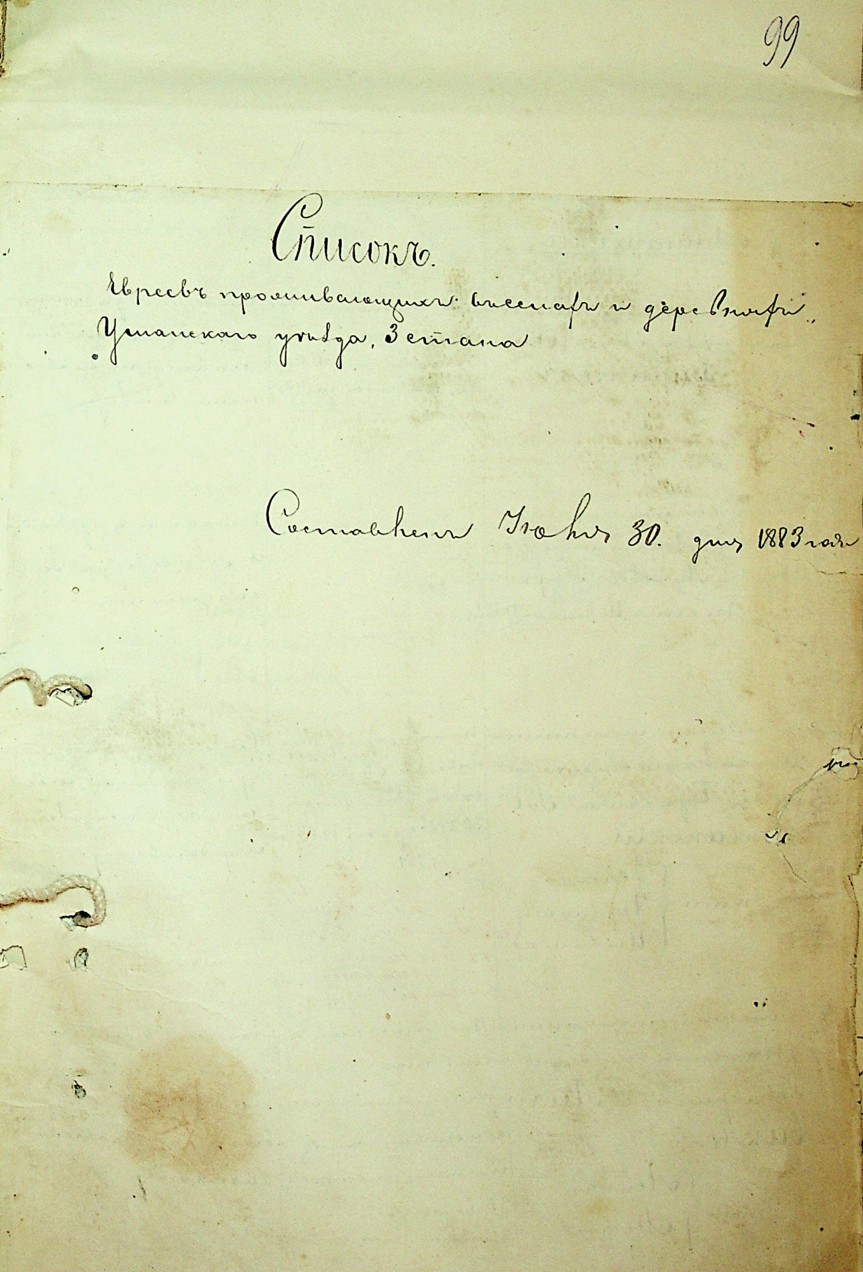 99
Списокъ.
Евреевъ проживающихъ въ селахъ и деревняхъ
Уманскаго уѣзда, 3 стана
Составленъ Июня 30. дня 1883 года